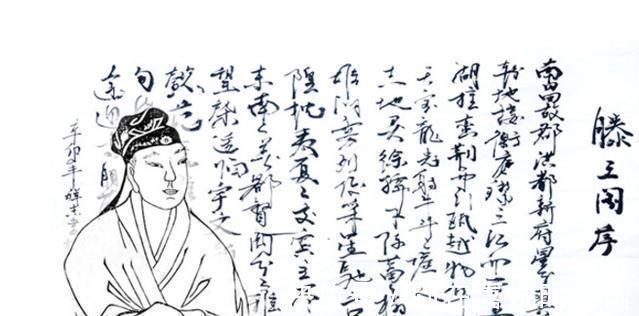 滕王阁序
南昌故郡洪都新府星分
轸地接衡庐襟三江而带五
湖控蛮荆而引瓯越物华
天宝龙光射牛斗之墟
杰地灵徐孺下陈蕃之榻
雄州雾列俊采星驰台
隍枕夷夏之交宾主尽
东南之美都督阎公之雅
望棨遥临宇文
懿范
旬
逢迎
辛卯年